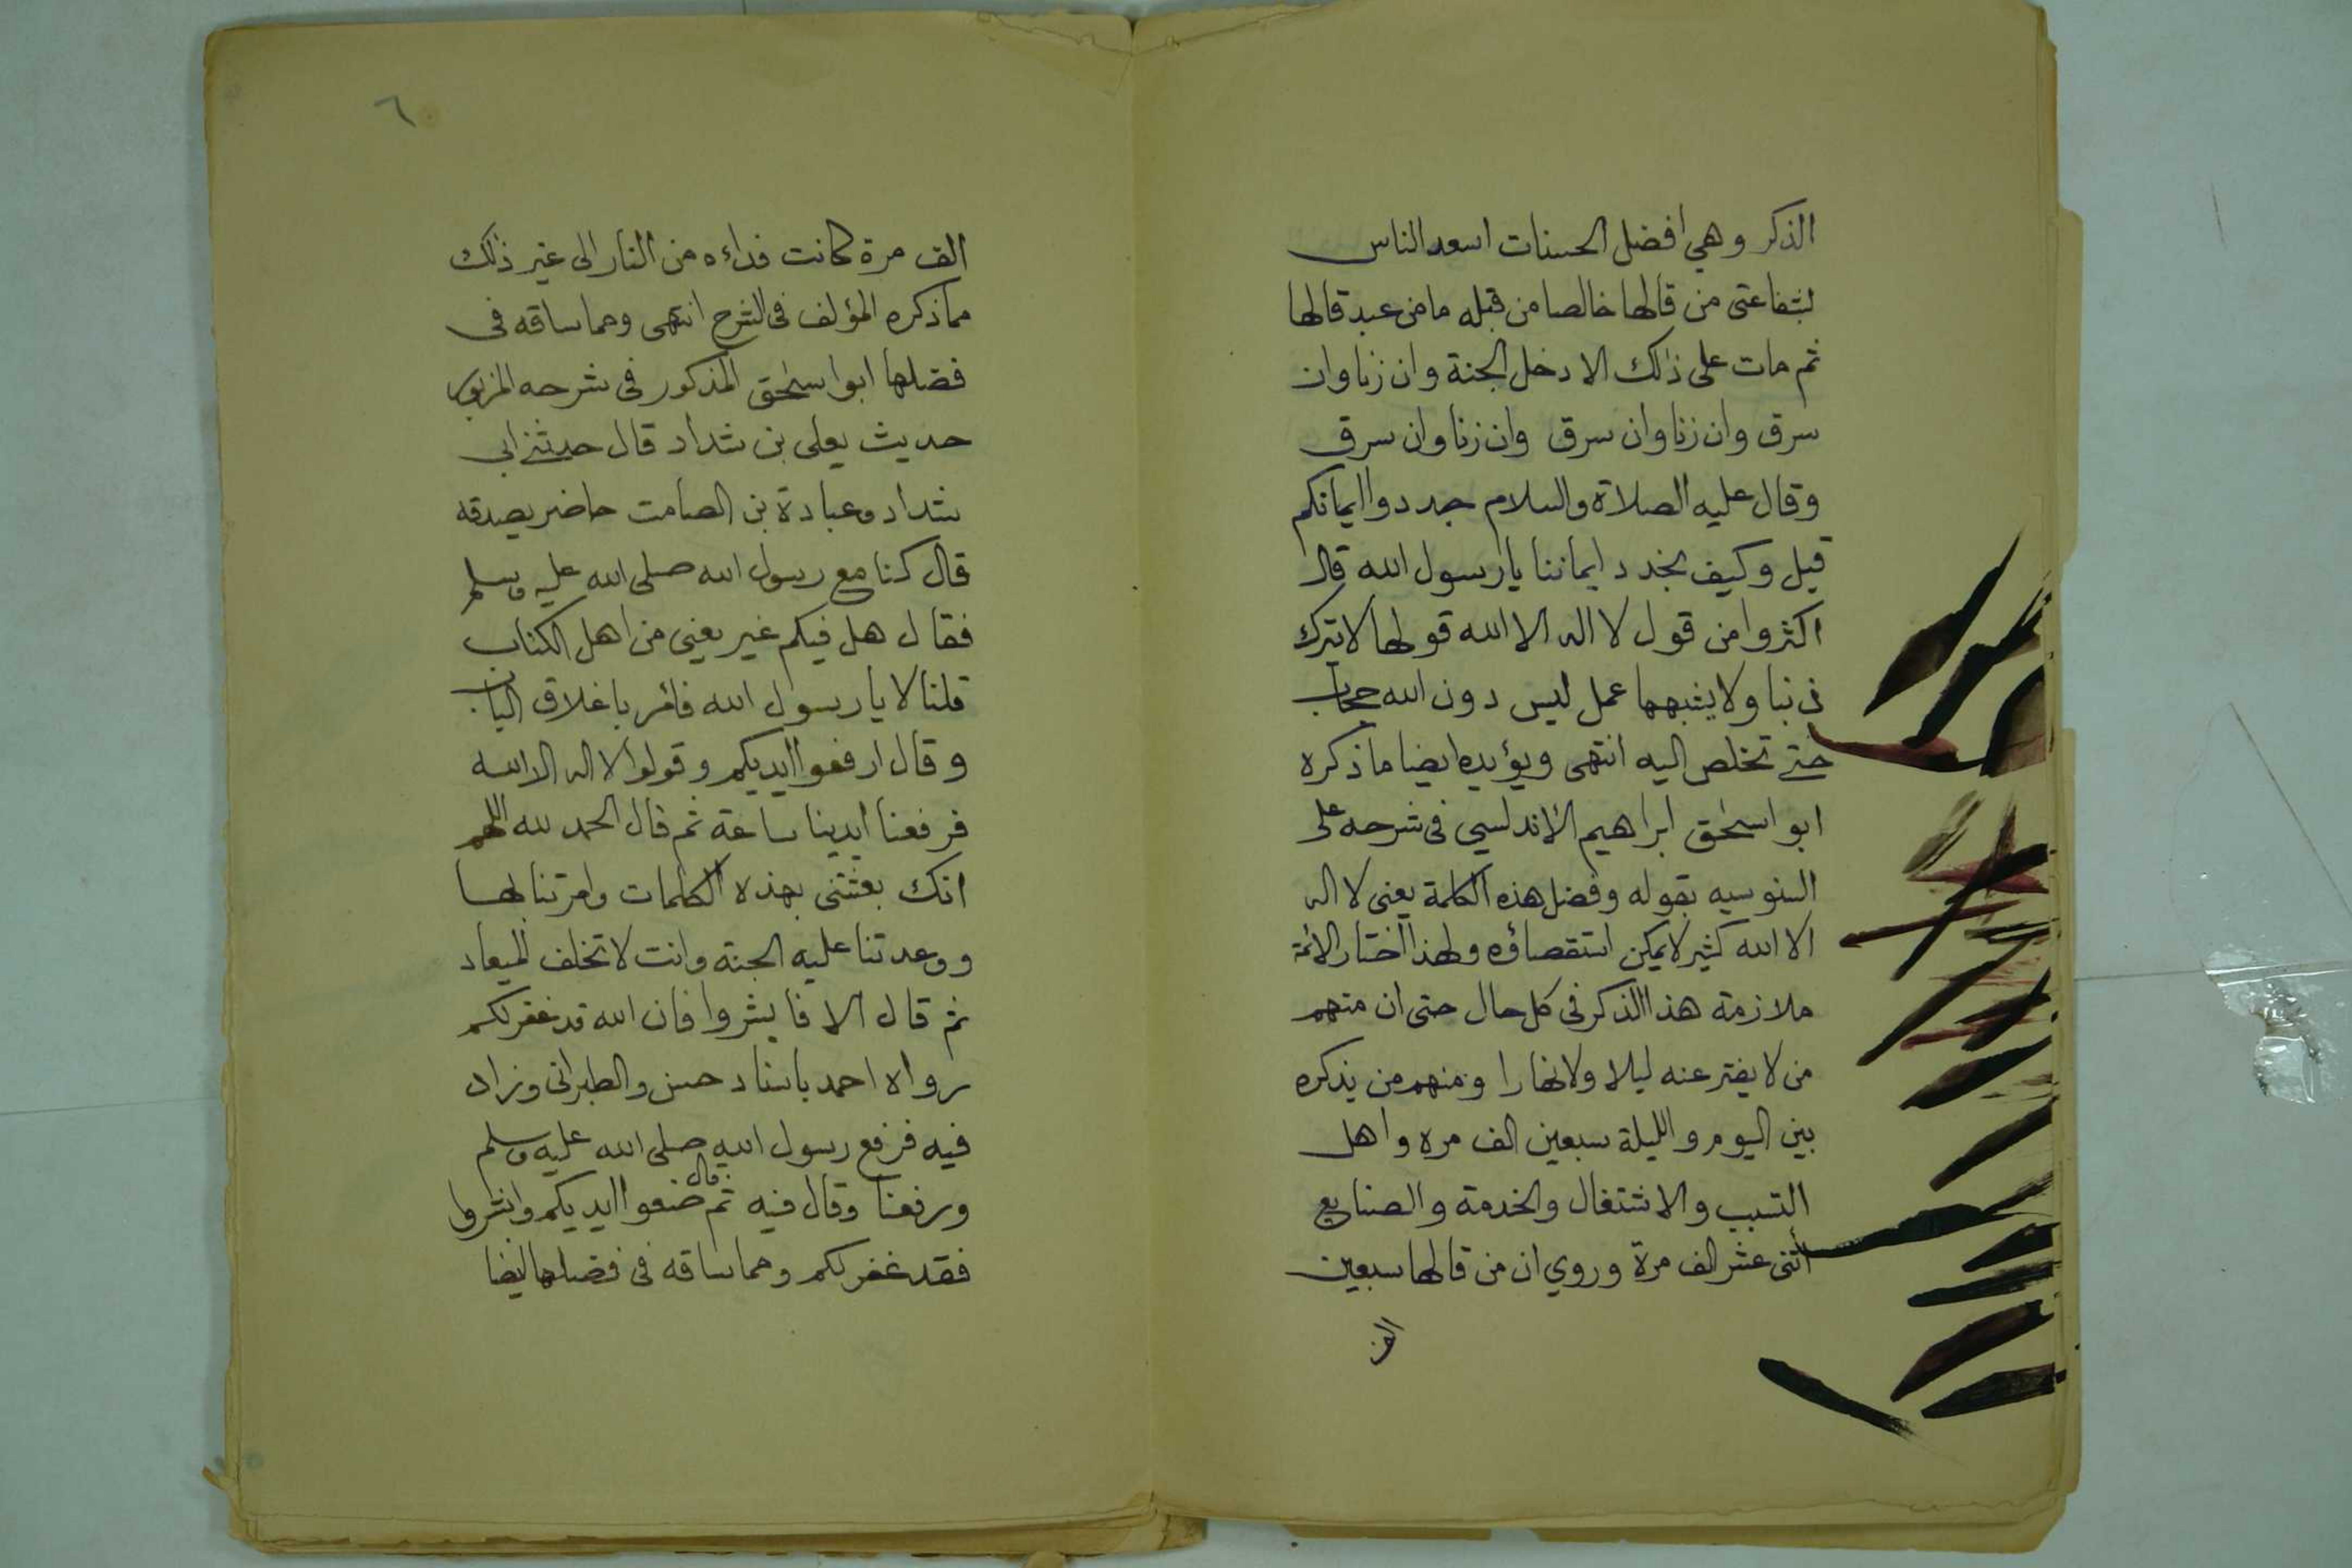 الذكر وهي افضل الحسنات اسعد الناس
بشفاعتى من قالها خالصا من قبله ما من عبد قالها
ثم مات على ذلك الا دخل الجنة وان زنا وان
سرق وان زنا وان سرق وان زنا وان سرق
وقال عليه الصلاة والسلام جددوا ايمانكم
قيل وكيف نجدد ايماننا يا رسول الله قال
اكثروا من قول لا اله الا الله قولها لا يترك
ذنبا ولا يشبهها عمل ليس دون الله حجاب
حتى تخلص اليه انتهى ويؤيده ايضا ما ذكره
ابو اسحق ابراهيم الاندلسي فى شرحه على
السنوسيه بقوله وفضل هذه الكلمة يعنى لا اله
الا الله كثير لا يمكن استقصاؤه ولهذا اختار الائمة
ملازمة هذا الذكر فى كل حال حتى ان منهم
من لا يفتر عنه ليلا ولا نهارا ومنهم من يذكره
بين اليوم والليلة سبعين الف مره واهل
التسبب والاشتغال والخدمة والصنايع
أثنى عشر الف مرة وروي ان من قالها سبعين
الف
٦
الف مرة كانت فداءه من النار الى غير ذلك
مما ذكره المؤلف فى الشرح انتهى ومما ساقه فى
فضلها ابو اسحق المذكور فى شرحه المزبور
حديث يعلى بن شداد قال حدثنى ابى
شداد وعبادة بن الصامت حاضر يصدقه
قال كنا مع رسول الله صلى الله عليه وسلم
فقال هل فيكم غير يعنى من اهل الكتاب
قلنا لا يا رسول الله فأمر باغلاق الباب
وقال ارفعوا ايديكم وقولوا لا اله الا الله
فرفعنا ايدينا ساعة ثم قال الحمد لله اللهم
انك بعثتنى بهذه الكلمات وامرتنا بها
ووعدتنا عليه الجنة وانت لا تخلف الميعاد
ثم قال الا فابشروا فان الله قد غفر لكم
رواه احمد باسناد حسن والطبرانى وزاد
فيه فرفع رسول الله صلى الله عليه وسلم
ورفعنا وقال فيه ثم قال ضعوا ايديكم وابشروا
فقد غفر لكم ومما ساقه فى فضلها ايضا